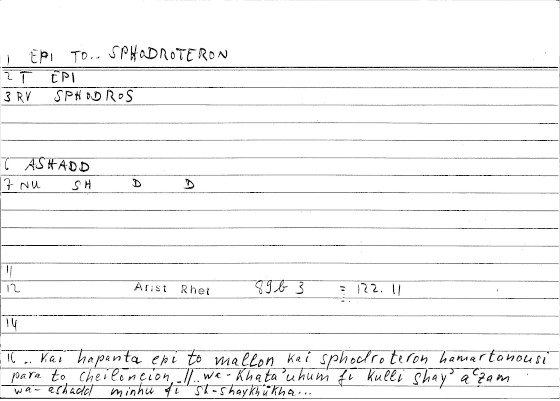 1 EPI TO.. SPHODROTERON
2 T EPI
3 RV SPHODROS
6 ASHADD
7 NU SH D D
11
12 Arist Rhet 89b 3 = 122.11
14
16 .. kai hapanta epi to mallon kai sphodroteron hamartanousi
para to cheilōneion // .. wa-khaṭa'uhum fī kulli shay' aʿẓam
wa-ashadd minhu fī sh-shaykhūkha...